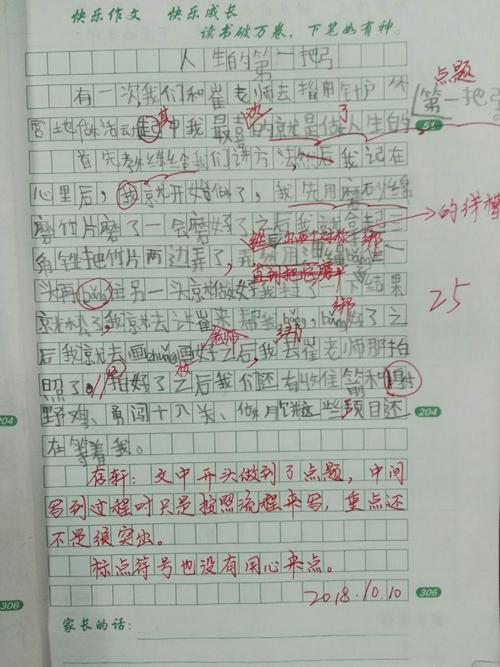 快乐作文 快乐成长
读书破万卷，下笔如有神。
人生的第一把弓
点题
有一次我们和崔老师去指南针户外
第一把弓
营地做活动其中我最喜的就是做人生的
51
首先教练给我们讲方法然后我记在
心里后，我就开始做了，我先用磨砂纸
磨竹片磨了一会磨好了之后我
的样
角 把竹片两边弄了，
直到把它磨平
头再 bǎng 住另一头 了一下结果
绑
25
了，我就去让崔 帮我 bǎng，好了之
老师
后我就去画 画好之后，我去崔老师那拍
照了，拍好了之后我们还有收准箭和射
204
204
野鸡、勇闯十八关、做月饼这些项目还
在等着我。
存轩：文中开头做到了点题，中间
写到过程时只是按照流程来写，重点还
不是很突出。
标点符号也没有用心来点。
2018.10.10
306
306
家长的话：